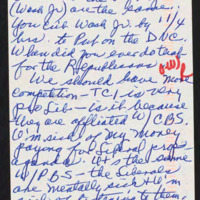 (Wash Jr.) are the same.
You cut Wash Jr. by 1 1/4
hrs. to put on the D.N.C.
When did you ever do that
for the Republicans
We should have more
competition - TCI is very
pro Lib - is it because
they are affiliated w/ CBS.
I'm sick of my money
paying for liberal prop
aganda. It's the same
w/ PBS - the Liberals
are mentally sick & I'm